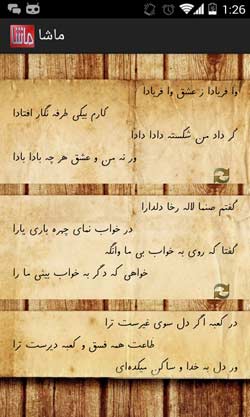 1:26
ماشا
وا فریادا ز عشق وا فریادا
کارم بیکی طرفه نگار افتادا
گر داد من شکسته دادا دادا
ور نه من و عشق هر چه بادا بادا
گفتم صنما لاله رخا دلدارا
در خواب نمای چهره باری یارا
گفتا که روی به خواب بی ما وانگه
خواهی که دگر به خواب بینی ما را
در کعبه اگر دل سوی غیرست ترا
طاعت همه فسق و کعبه دیرست ترا
ور دل به خدا و ساکن میکده‌ای